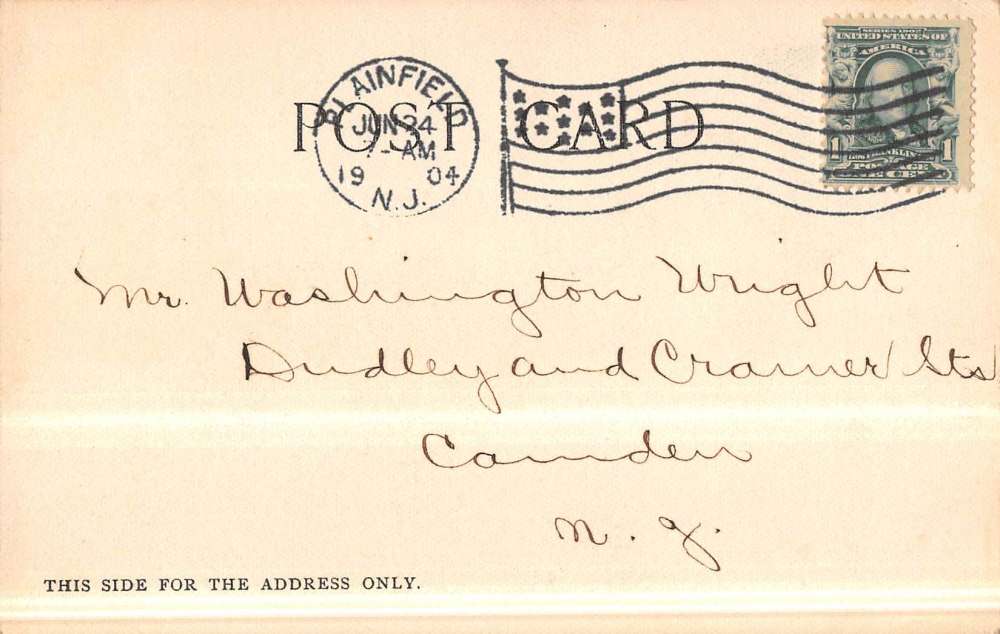 SERIES 1902
UNITED STATES OF
AMERICA
1 FRANKLIN 1
POSTAGE
POST CARD
PLAINFIELD
JUN 24
AM
19 04
N.J.
Mr. Washington Wright
Dudley and Cramer Sts
Camden
N. J.
THIS SIDE FOR THE ADDRESS ONLY.